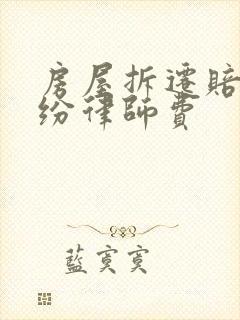 房屋拆遷賠
紛律師費
藍寞寞